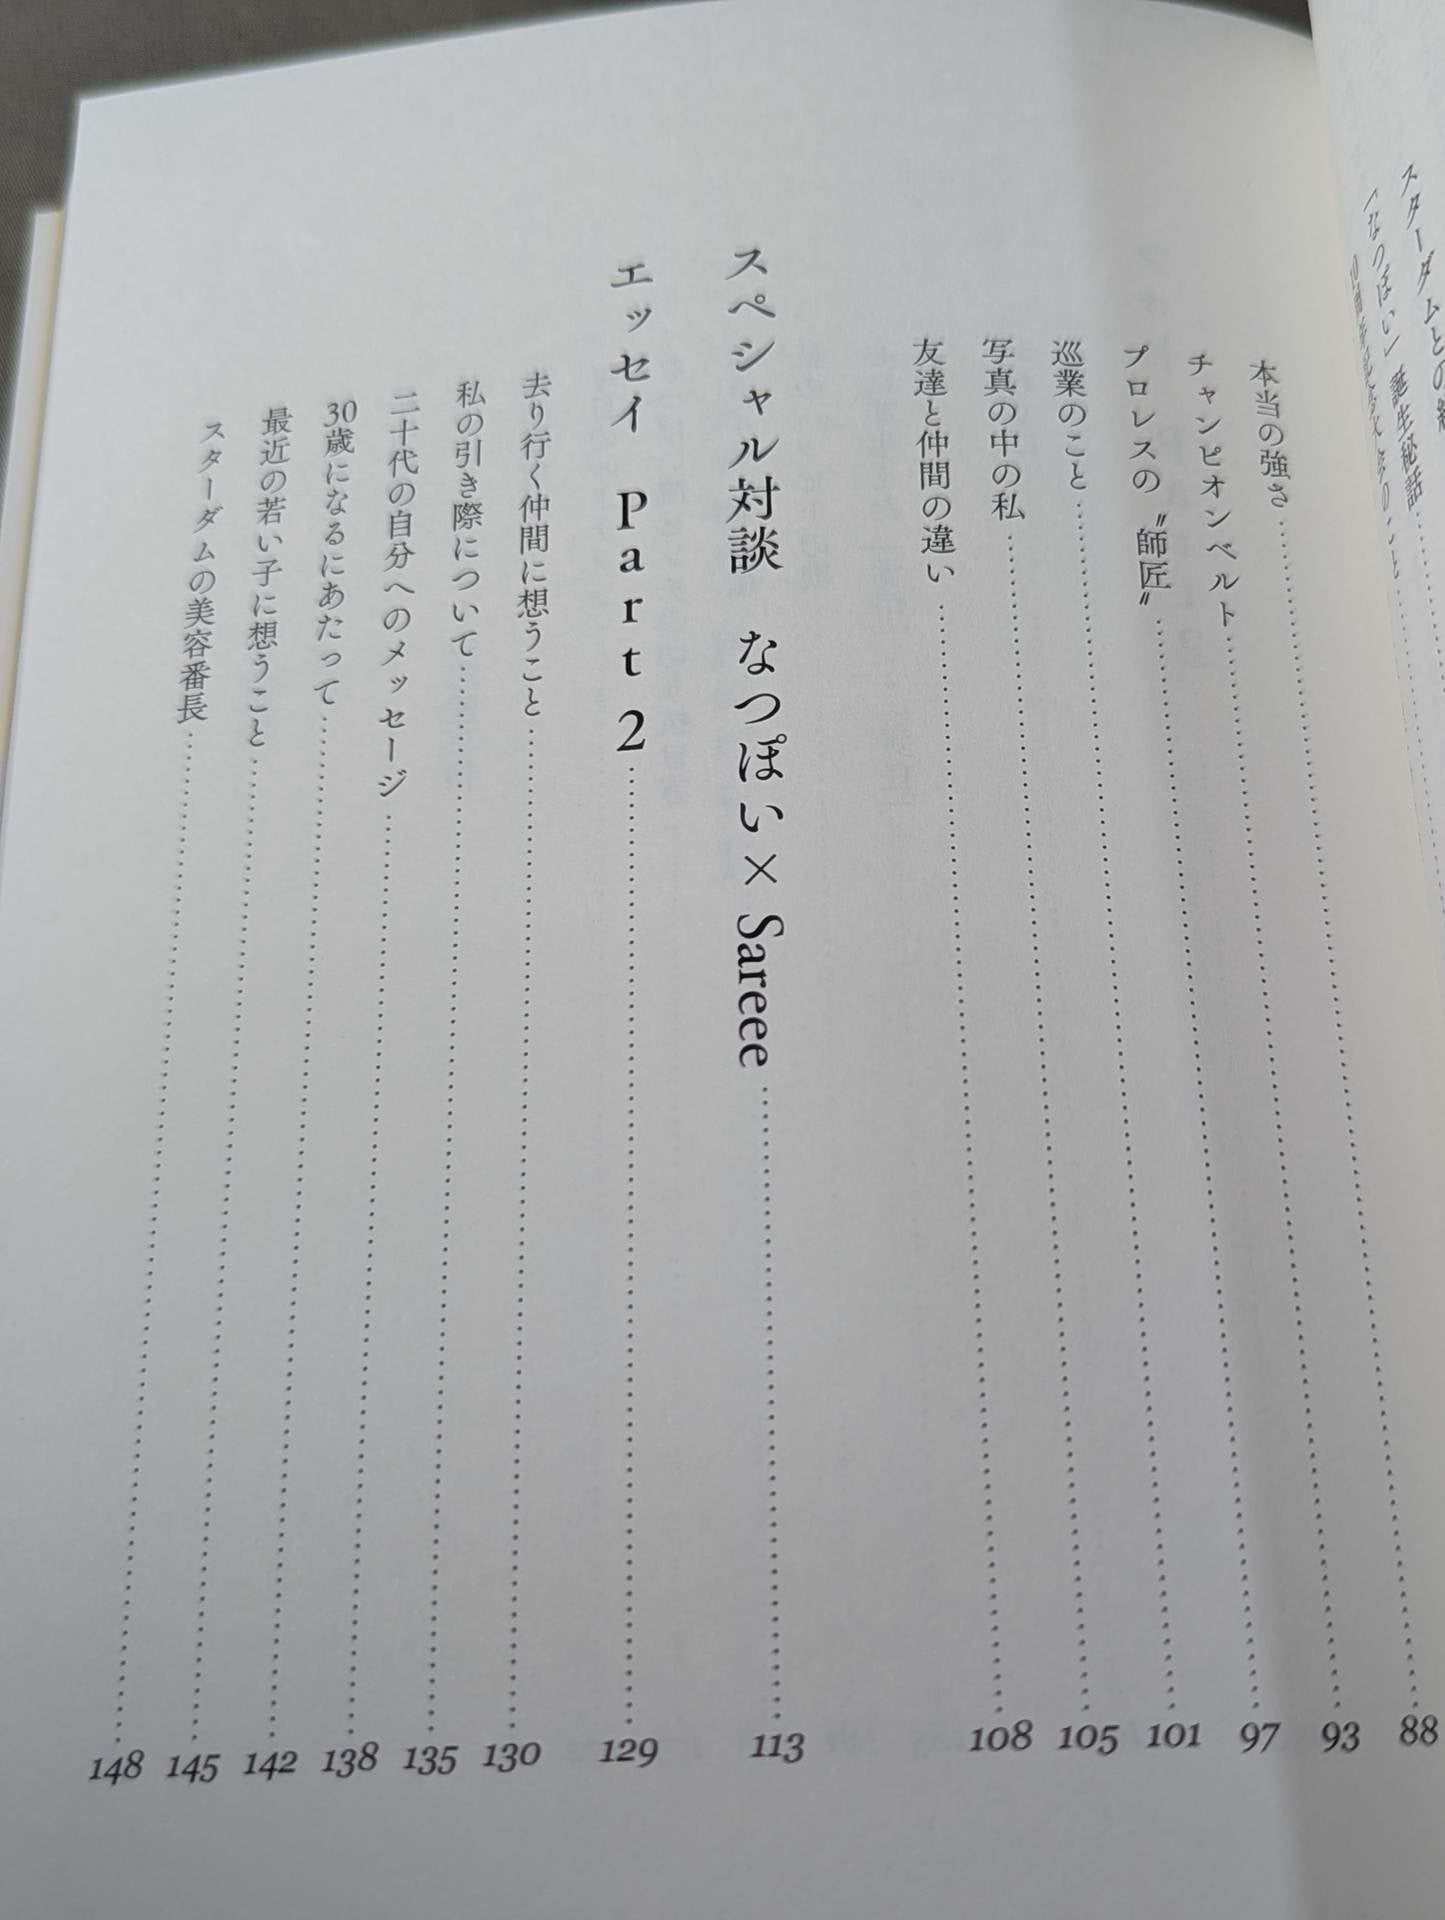 スターダムとの
「なつぽい」誕生秘話
本当の強さ 88
チャンピオンベルト 93
プロレスの〝師匠〟 97
巡業のこと 101
写真の中の私 105
友達と仲間の違い 108
スペシャル対談 なつぽい×Sareee 113
エッセイ Part 2 129
去り行く仲間に想うこと 130
私の引き際について 135
二十代の自分へのメッセージ 138
30歳になるにあたって 142
最近の若い子に想うこと 145
スターダムの美容番長 148